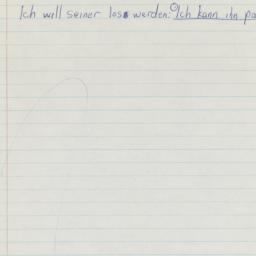 Ich will seiner los werden. Ich kann ihn